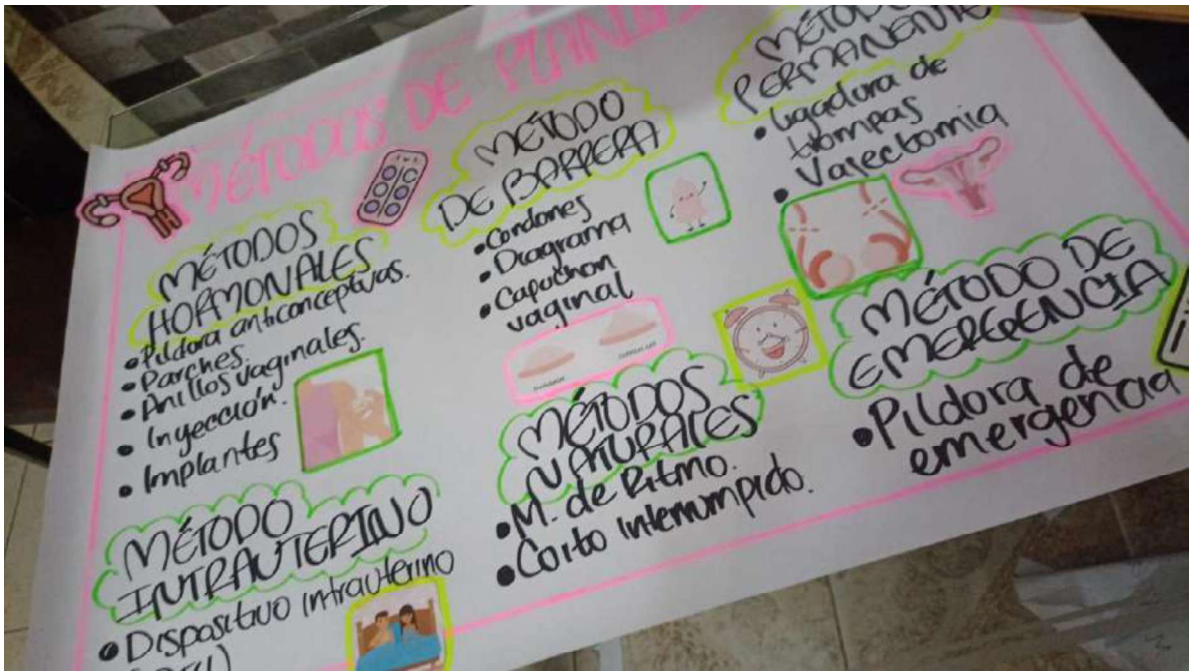 MÉTODOS DE
MÉTODOS
HORMONALES
• Píldora anticonceptivas.
• Parches.
• Anillos vaginales.
• Inyección.
• Implantes
MÉTODO
INTRAUTERINO
• Dispositivo intrauterino
MÉTODO
DE BARRERA
• Condones
• Diagrama
• Capuchon
vaginal
MÉTODOS
NATURALES
• M. de Ritmo.
• Coito interrumpido.
MÉTODO
PERMANENTE
• Ligadura de
trompas
• Vasectomia
MÉTODO DE
EMERGENCIA
• Pildora de
emergencia